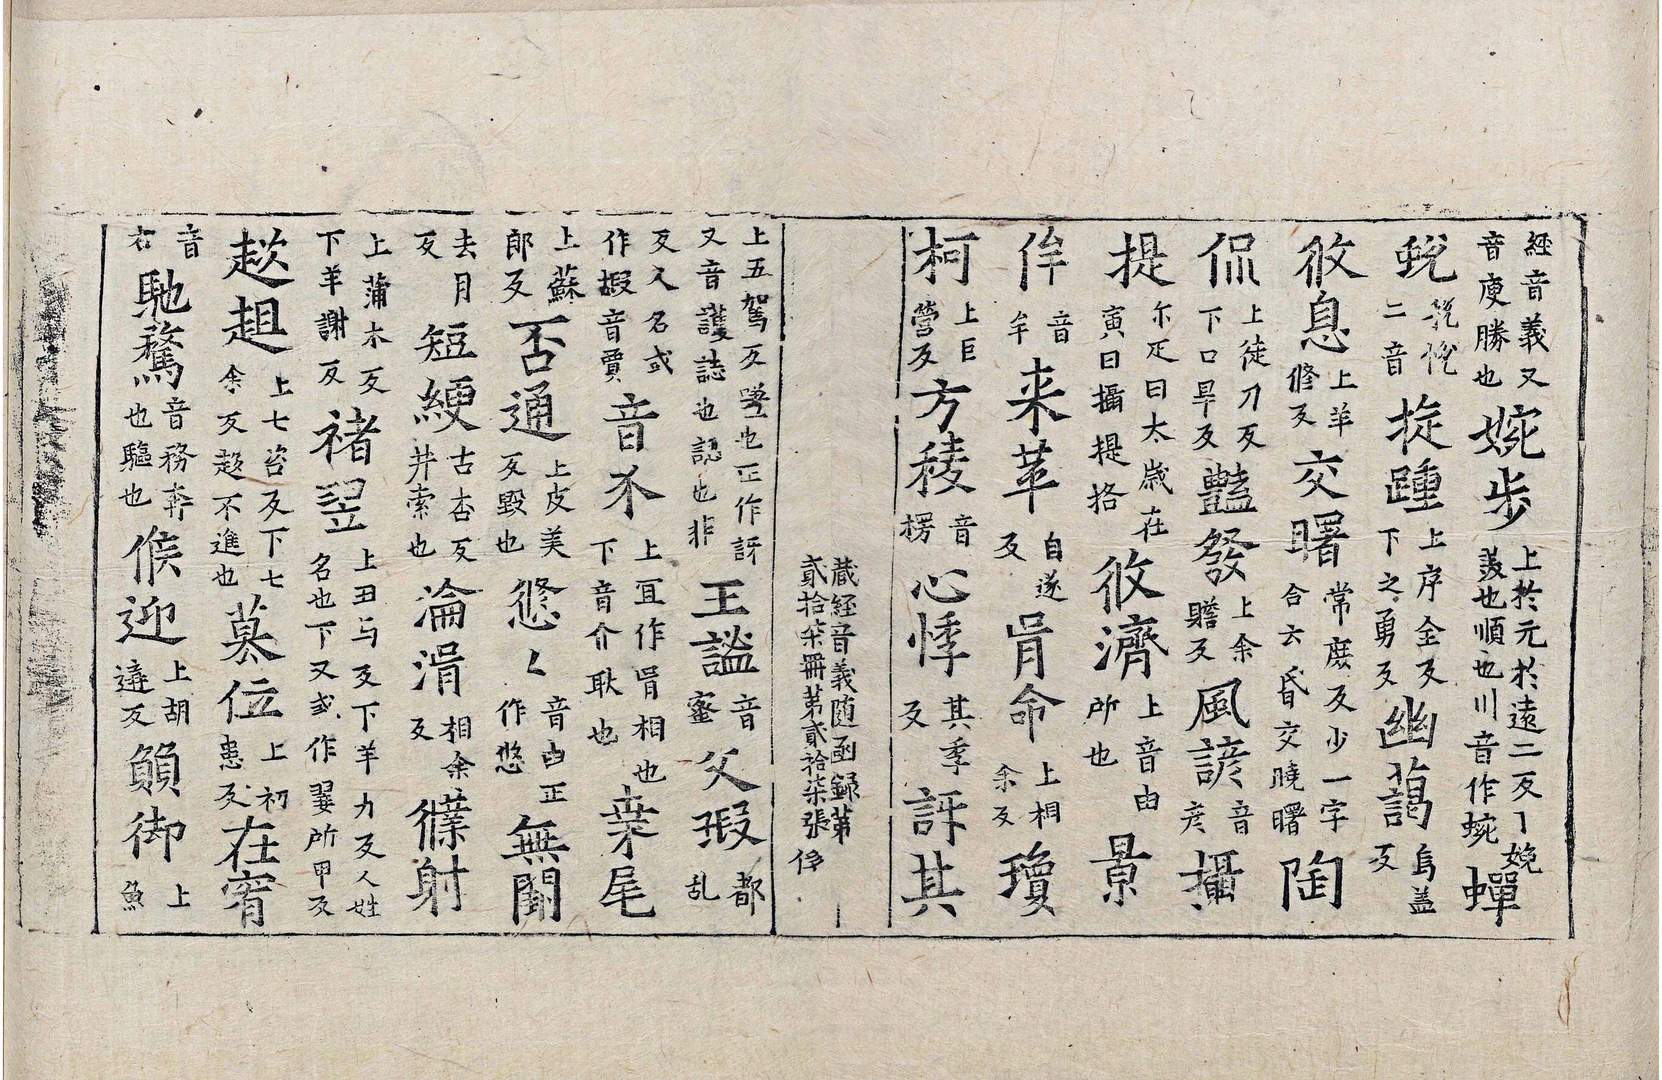 經音義又音庱勝也婉步上於元於遠二反丨婉美也順也川音作蜿蟬
蛻㲾悅二音㧒踵上序全反下之勇反幽藹烏盖反
攸息上羊修反交曙常庶反少一字合云昏交曉曙陶
侃上徒刀反下口旱反豔發上余贍反風諺音彦攝
提尒疋曰太歳在寅曰攝提挌攸濟上音由所也景
侔音牟来萃自遂反胥命上相余反瓊
柯上巨營反方稜音楞心悸其季反訝其
藏經音義随函録第貳拾柒冊第貳拾柒張
上五駕反又音護誌也認也非王謐音蜜父瑕都乱
反人名或作椵音賈音木上亙作胥相也下音介耿也桒尾
上蘇郎反否通上皮美反毀也悠〻音由正作悠無聞
去月反短綆古杏反井索也淪湑相余反穕射
上蒲木反下羊謝反禇翌上丑与反下羊力反人姓名也下又或作翣所甲反
趑趄上七咨反下七余反趑不進也墓位上初患反在宥
音右馳騖音務奔也驅也候迎上胡遘反籫御上魚